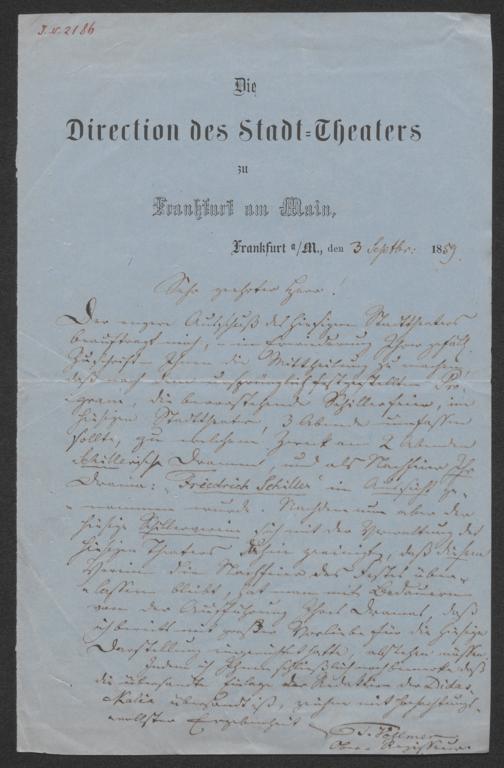 J. N. 2186
Die
Direction des Stadt=Theaters
zu
Frankfurt am Main,
Frankfurt a/M., den 3 Septbr: 1859.
Sehr geehrter Herr!
Der engere Ausschuß des hiesigen Stadttheaters
beauftragt mich, in Erwiederung Ihrer gefäll.
Zuschrift Ihnen die Mittheilung zu machen,
daß nach dem ursprünglich festgestellten Pro-
gram die bevorstehende Schillerfeier, im
hiesigen Stadttheater, 3 Abende umfassen
sollte, zu welchem Zweck an 2 Abenden
Schillerische Dramen, und als Nachfeier Ihr
Drama: "Friedrich Schiller" in Aussicht ge-
nommen wurde. Nachdem nun aber der
hiesige Schillerverein sich mit der Verwaltung des
hiesigen Theaters dahin geeinigt, daß diesem
Verein die Nachfeier des Festes über-
lassen bleibt, hat man mit Bedauern
von der Aufführung Ihres Dramas, das
ich bereits mit großer Vorliebe für die hiesige
Darstellung eingerichtet hatte, abstehen müssen.
Indem ich Ihnen schließlich noch bemerke daß
die übersandte Einlage der Redaktion der Didas-
kalia übersandt ist, zeichne mit hochachtungs-
vollster Ergebenheit
Vollmer
Ober-Regisseur.